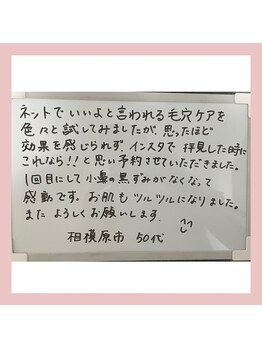 ネットでいいよと言われる毛穴ケアを
色々と試してみましたが、思ったほど
効果を感じられず、インスタで拝見した時に
これなら!!と思い予約させていただきました。
1回目にして小鼻の黒ずみがなくなって
感動です。お肌もツルツルになりました。
またよろしくお願いします。
相模原市 50代